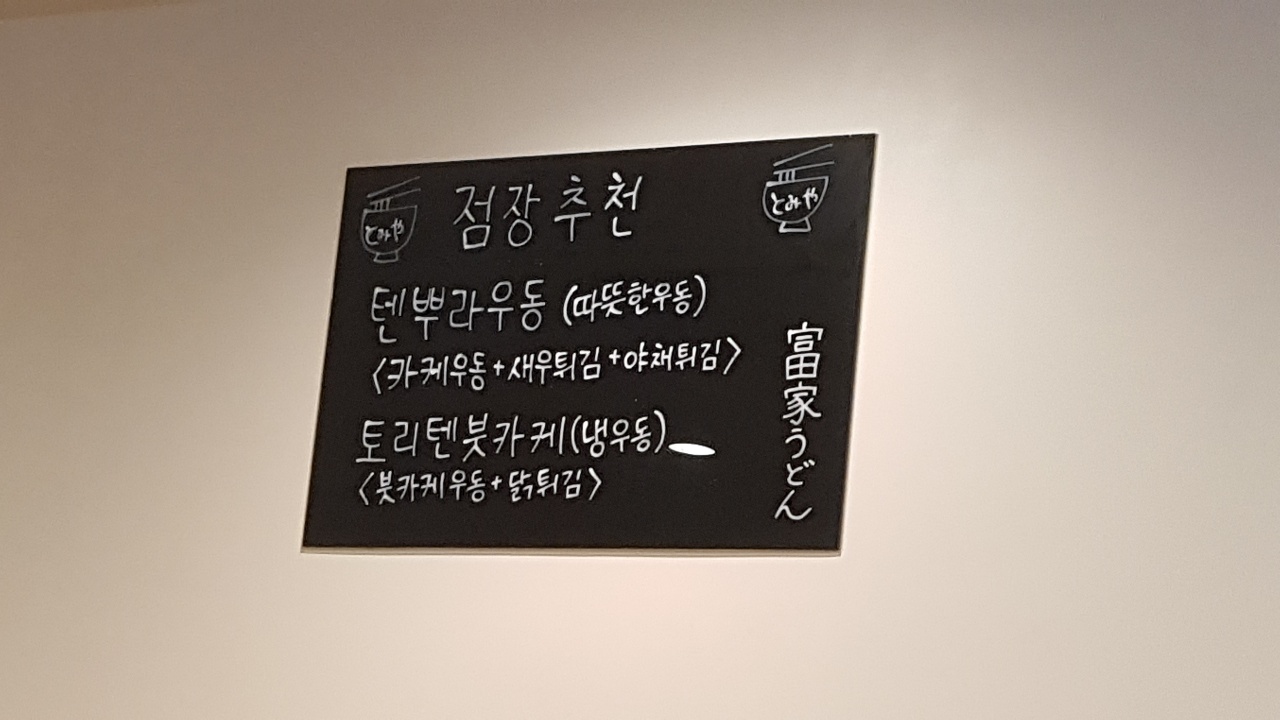 とみや
점장추천
とみや
텐뿌라우동 (따뜻한우동)
<카케우동+새우튀김+야채튀김>
토리텐붓카케(냉우동)
<붓카케우동+닭튀김>
富家うどん